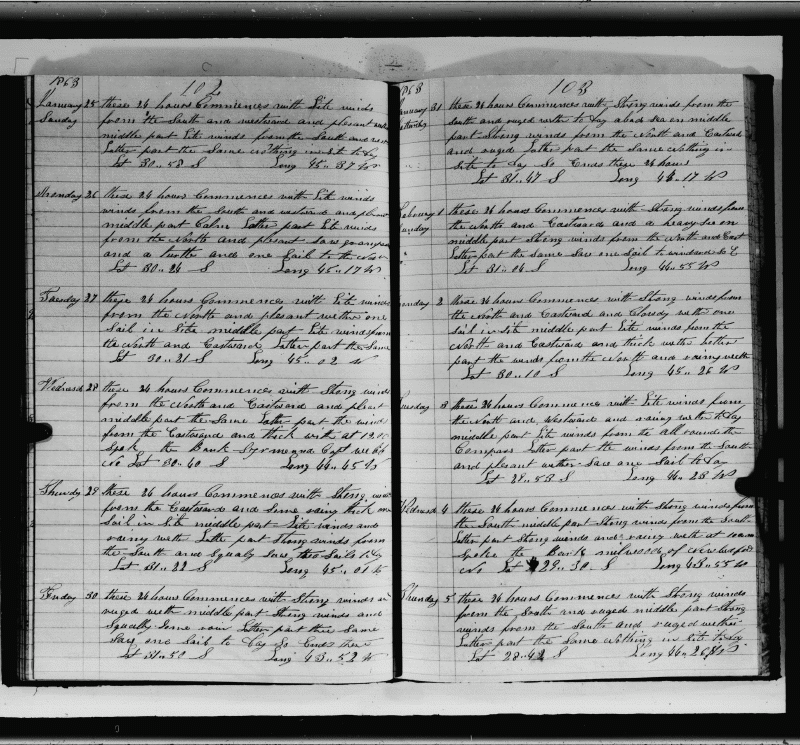 1863 102
January 25 these 24 hours Commences with Lite winds
Sunday from the South and westward and plesant wether
middle part Lite winds from the South and west
Latter part the Same nothing in Sit to Day
Lat 30.. 58 S Long 45.. 37 W
Monday 26 these 24 hours Commences with Lite winds
winds from the South and westward and plesant
middle part Calm Latter part Lite winds
from the North and plesant Saw grampas
and a turtle and one Sail to the
Lat 30.. 24 S Long 45.. 17 W
Tuesday 27 these 24 hours Commences with Lite winds
from the North and plesant wether one
Sail in Site middle part Lite winds from
the North and Eastward Latter part the Same
Lat 30.. 21 S Long 45.. 02 W
Wednsd 28 these 24 hours Commences with Strong winds
from the North and Eastward and plesant
middle part the Same Latter part the winds
from the Eastward and thick weth at 12
Spok the Bark Capt
no Lat 30.. 40 S Long 44.. 45 W
Thursdy 29 these 24 hours Commences with Strong winds
from the Eastward and Some rainy thick one
Sail in Site middle part Lite winds and
rainy weth Latter part Strong winds from
the South and Squaly Saw two Sails to Day
Lat 31.. 22 S Long 45.. 01 W
Friday 30 these 24 hours Commences with Strong winds and
ruged weth middle part Strong winds and
Squaly Some rain Latter part thee Same
Saw one Sail to Day So Ends these
Lat 31.. 50 S Long 43.. 52 W
1863 103
January 31 these 24 hours Commences with Strong winds from the
Saturday South and ruged weth to Day a bad Sea on middle
part Strong winds from the North and Eastward
and ruged Latter part the Same nothing in
Site to Day So Ends these 24 hours
Lat 31.. 47 S Long 44.. 17 W
February 1 these 24 hours Commences with Strong winds from
Sunday the North and Eastward and a heavy Sea on
middle part Strong winds from the North and East
Latter part the Same Saw one Sail to windward So E
Lat 31.. 06 S Long 44.. 55 W
Monday 2 these 24 hours Commences with Strong winds from
the North and Eastward and Cloudy weth one
Sail in Site middle part Lite winds from the
North and Eastward and thick weth Latter
part the winds from the North and rainy weth
Lat 30.. 10 S Long 45.. 26 W
Tuesday 3 these 24 hours Commences with Lite winds from
the North and Westward and rainy weth to Day
middle part Lite winds from the all round the
Compass Latter part the winds from the South
and plesant wether Saw one Sail to Day
Lat 29.. 58 S Long 46.. 23 W
Wednsd 4 these 24 hours Commences with Strong winds from
the South middle part Strong winds from the South
Latter part Strong winds and rainy weth at
Spoke the Bark of
No Lat 29.. 30 S Long 43.. 55 W
Thursday 5 these 24 hours Commences with Strong winds
from the South and ruged middle part Strong
winds from the South and ruged wether
Latter part the Same nothing in Sit to Day
Lat 28.. 42 S Long 44.. 26 W